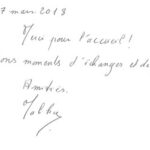 7 mars 2018
Merci pour l'accueil !
ons moments d'échanges et de
Amitiés.